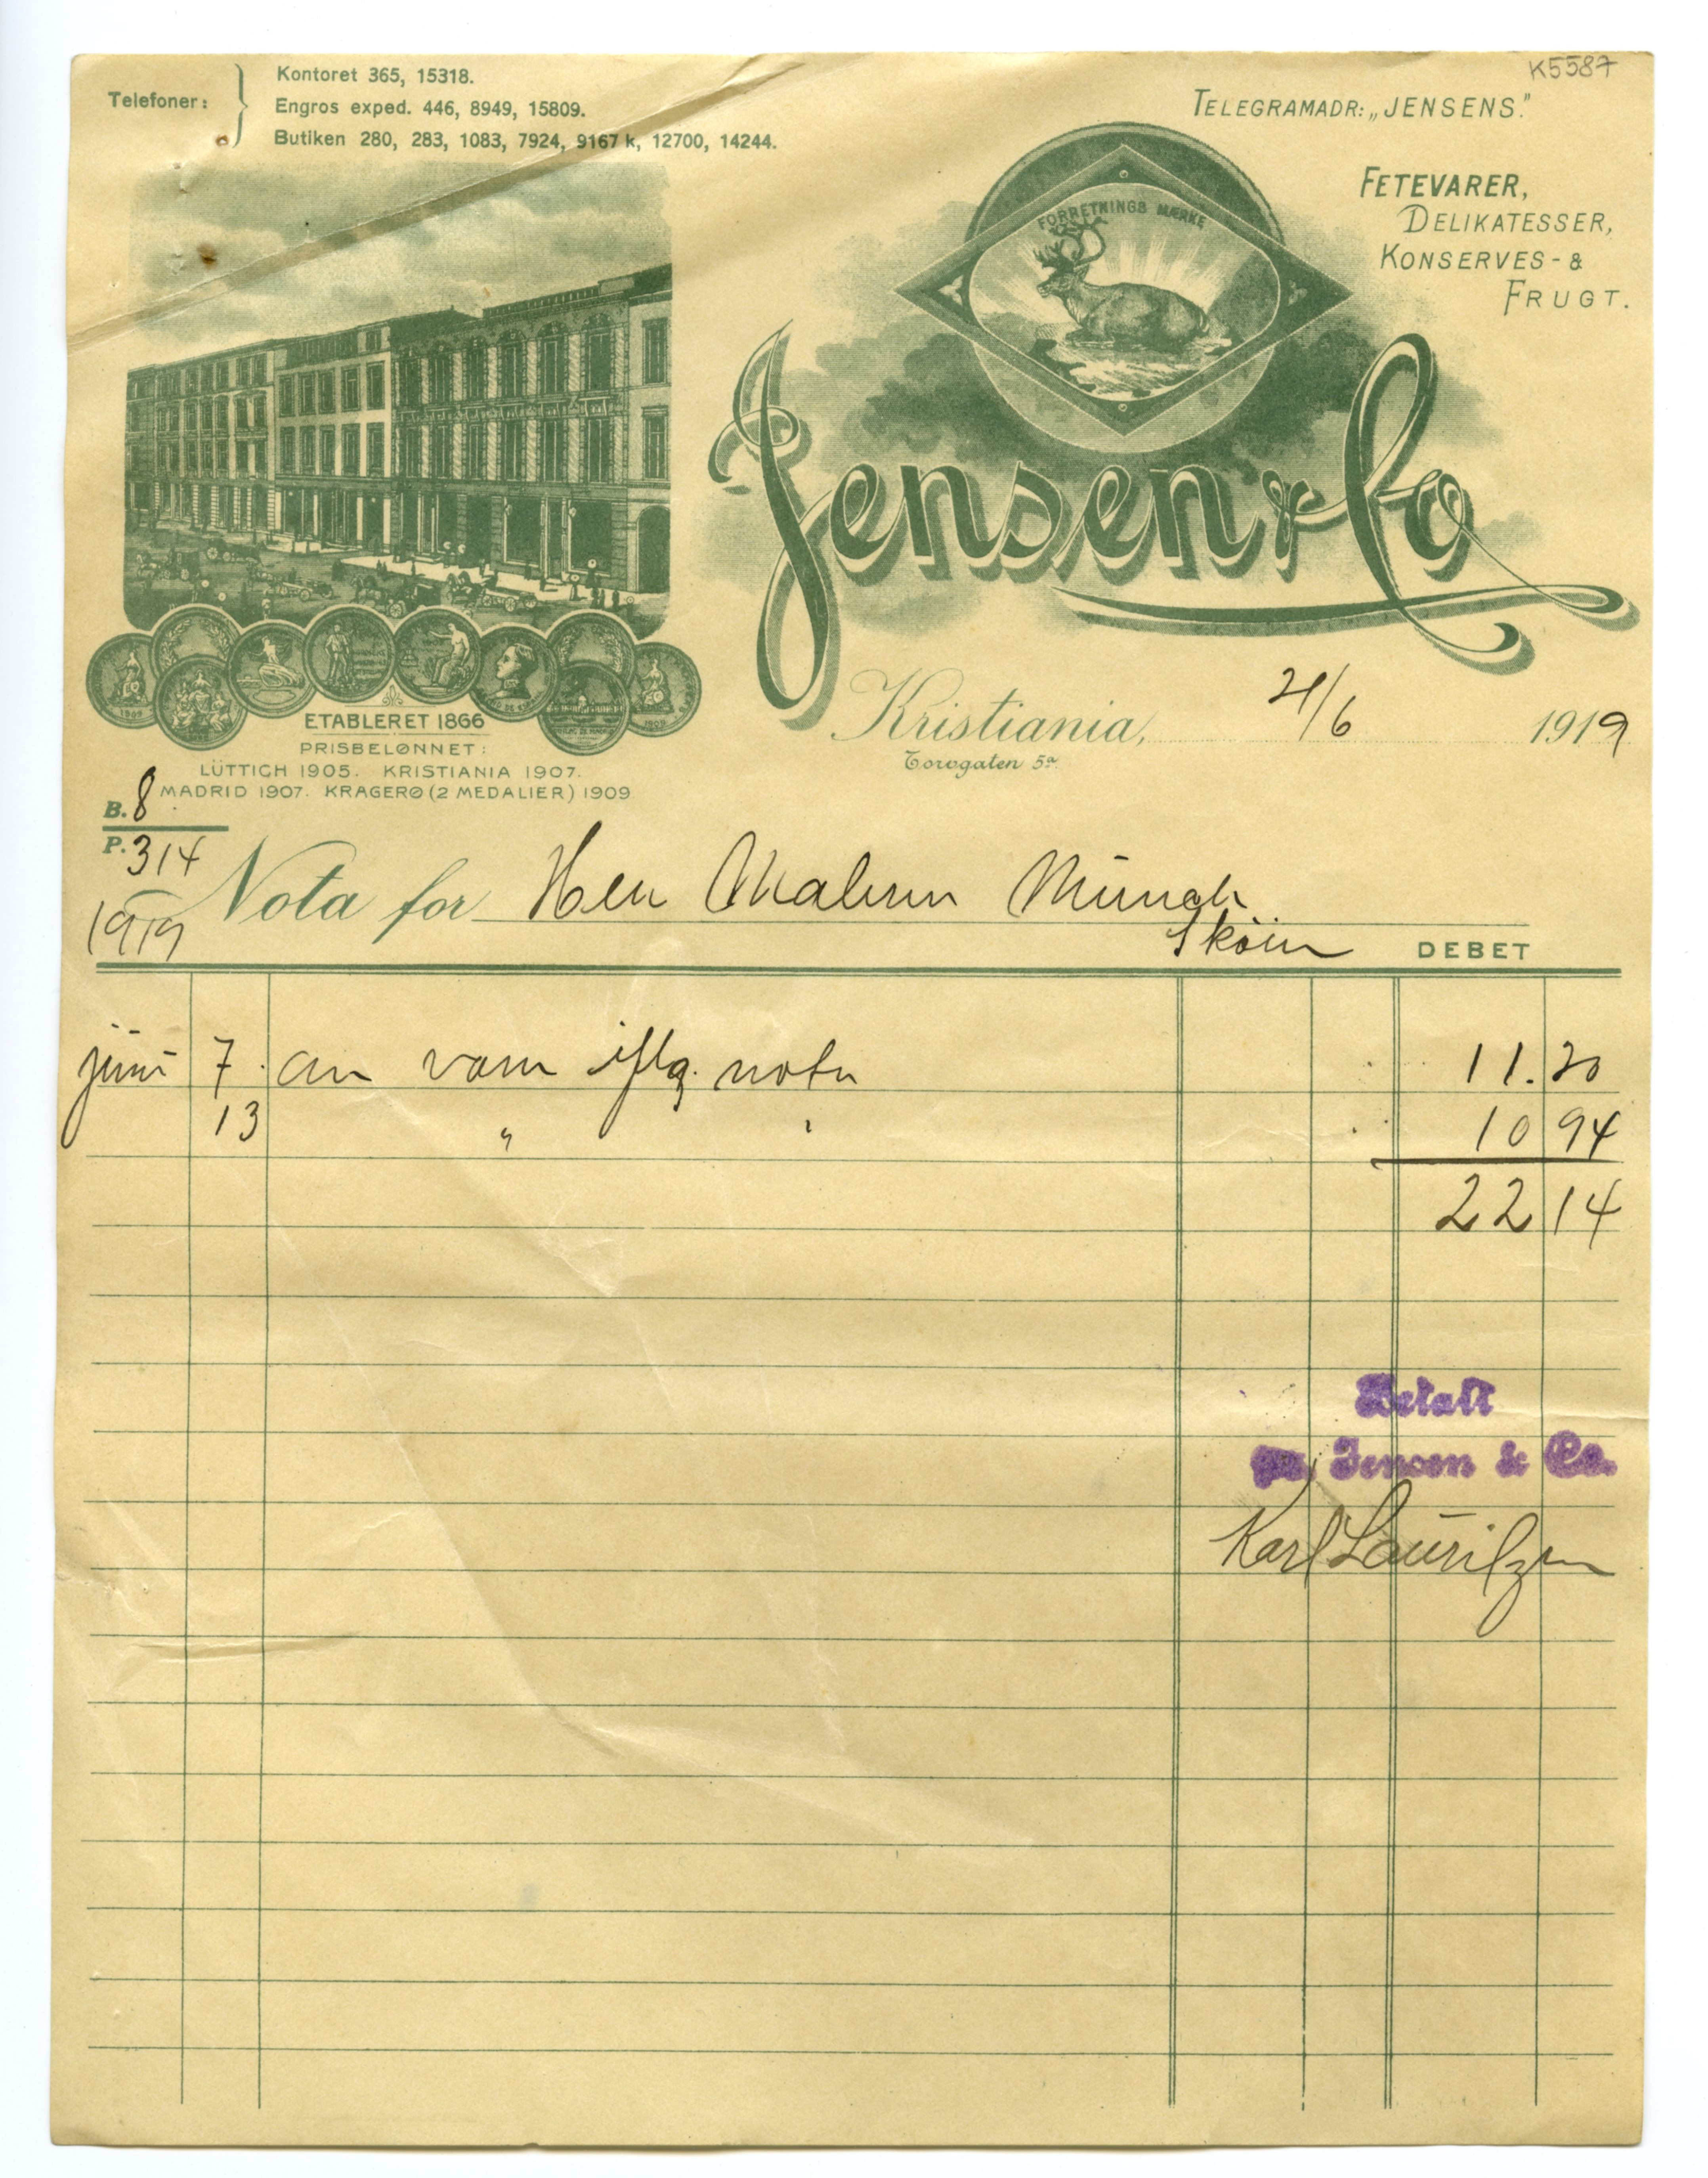 K5587
Telefoner:
Kontoret 365, 15318.
Engros exped. 446, 8949, 15809.
Butiken 280, 283, 1083, 7924, 9167 k, 12700, 14244.
TELEGRAMADR: „JENSENS."
FETEVARER,
DELIKATESSER,
KONSERVES- &
FRUGT.
FORRETNINGS MÆRKE
Jensen & Co
ETABLERET 1866
PRISBELØNNET:
LÜTTICH 1905. KRISTIANIA 1907.
MADRID 1907. KRAGERØ (2 MEDALIER) 1909
Kristiania, 21/6 1919
Torvgaten 5a.
B. 8
P. 314
1919
Nota for Herr Maleren Munch
Sköien
DEBET
juni 7. an varer iflg. nota 11.20
13 " " 10 94
22 14
Betalt
Jensen & Co.
Karl Lauritzen